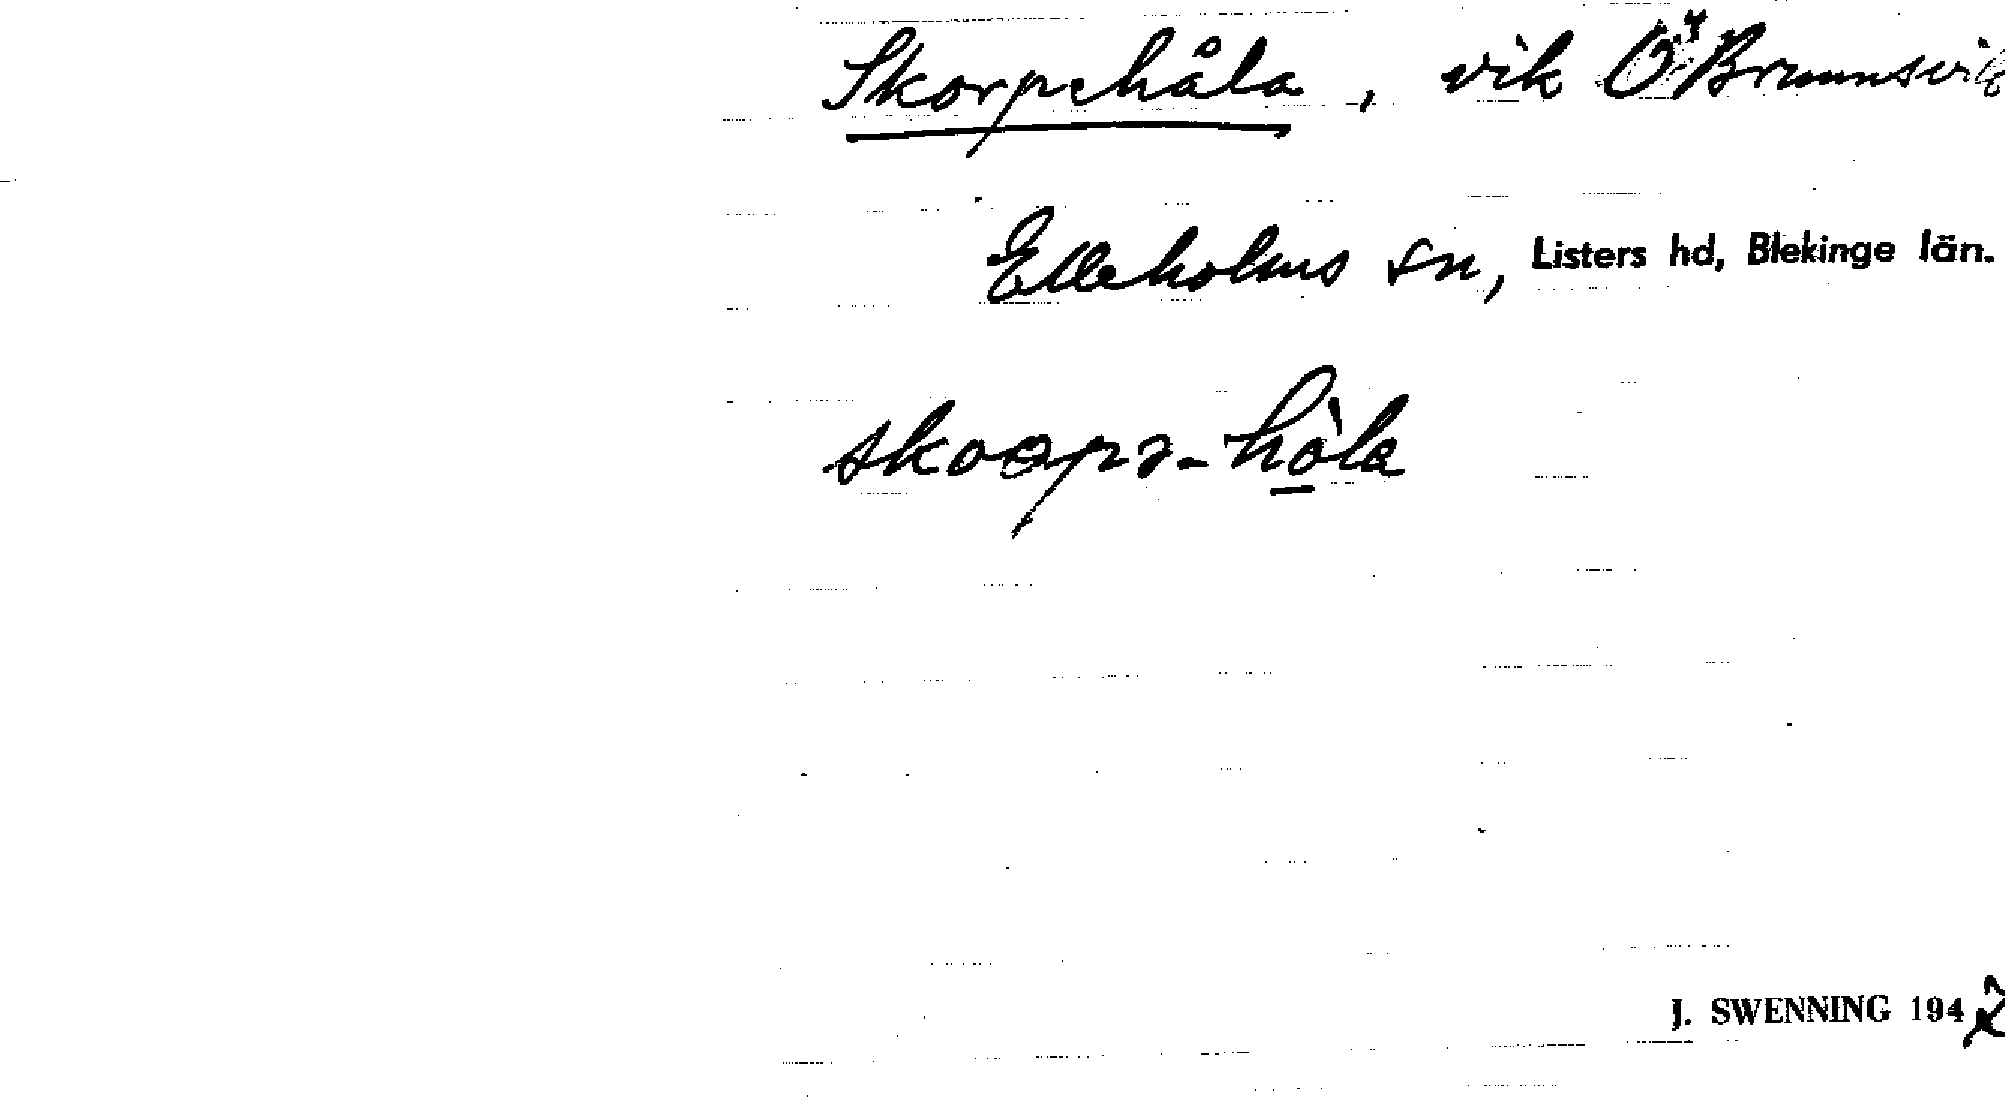 Skorpehåla, vik Ö Brunnsvik
Elleholms sn, Listers hd, Blekinge län.
skoorpə-hòla
J. SWENNING 1942